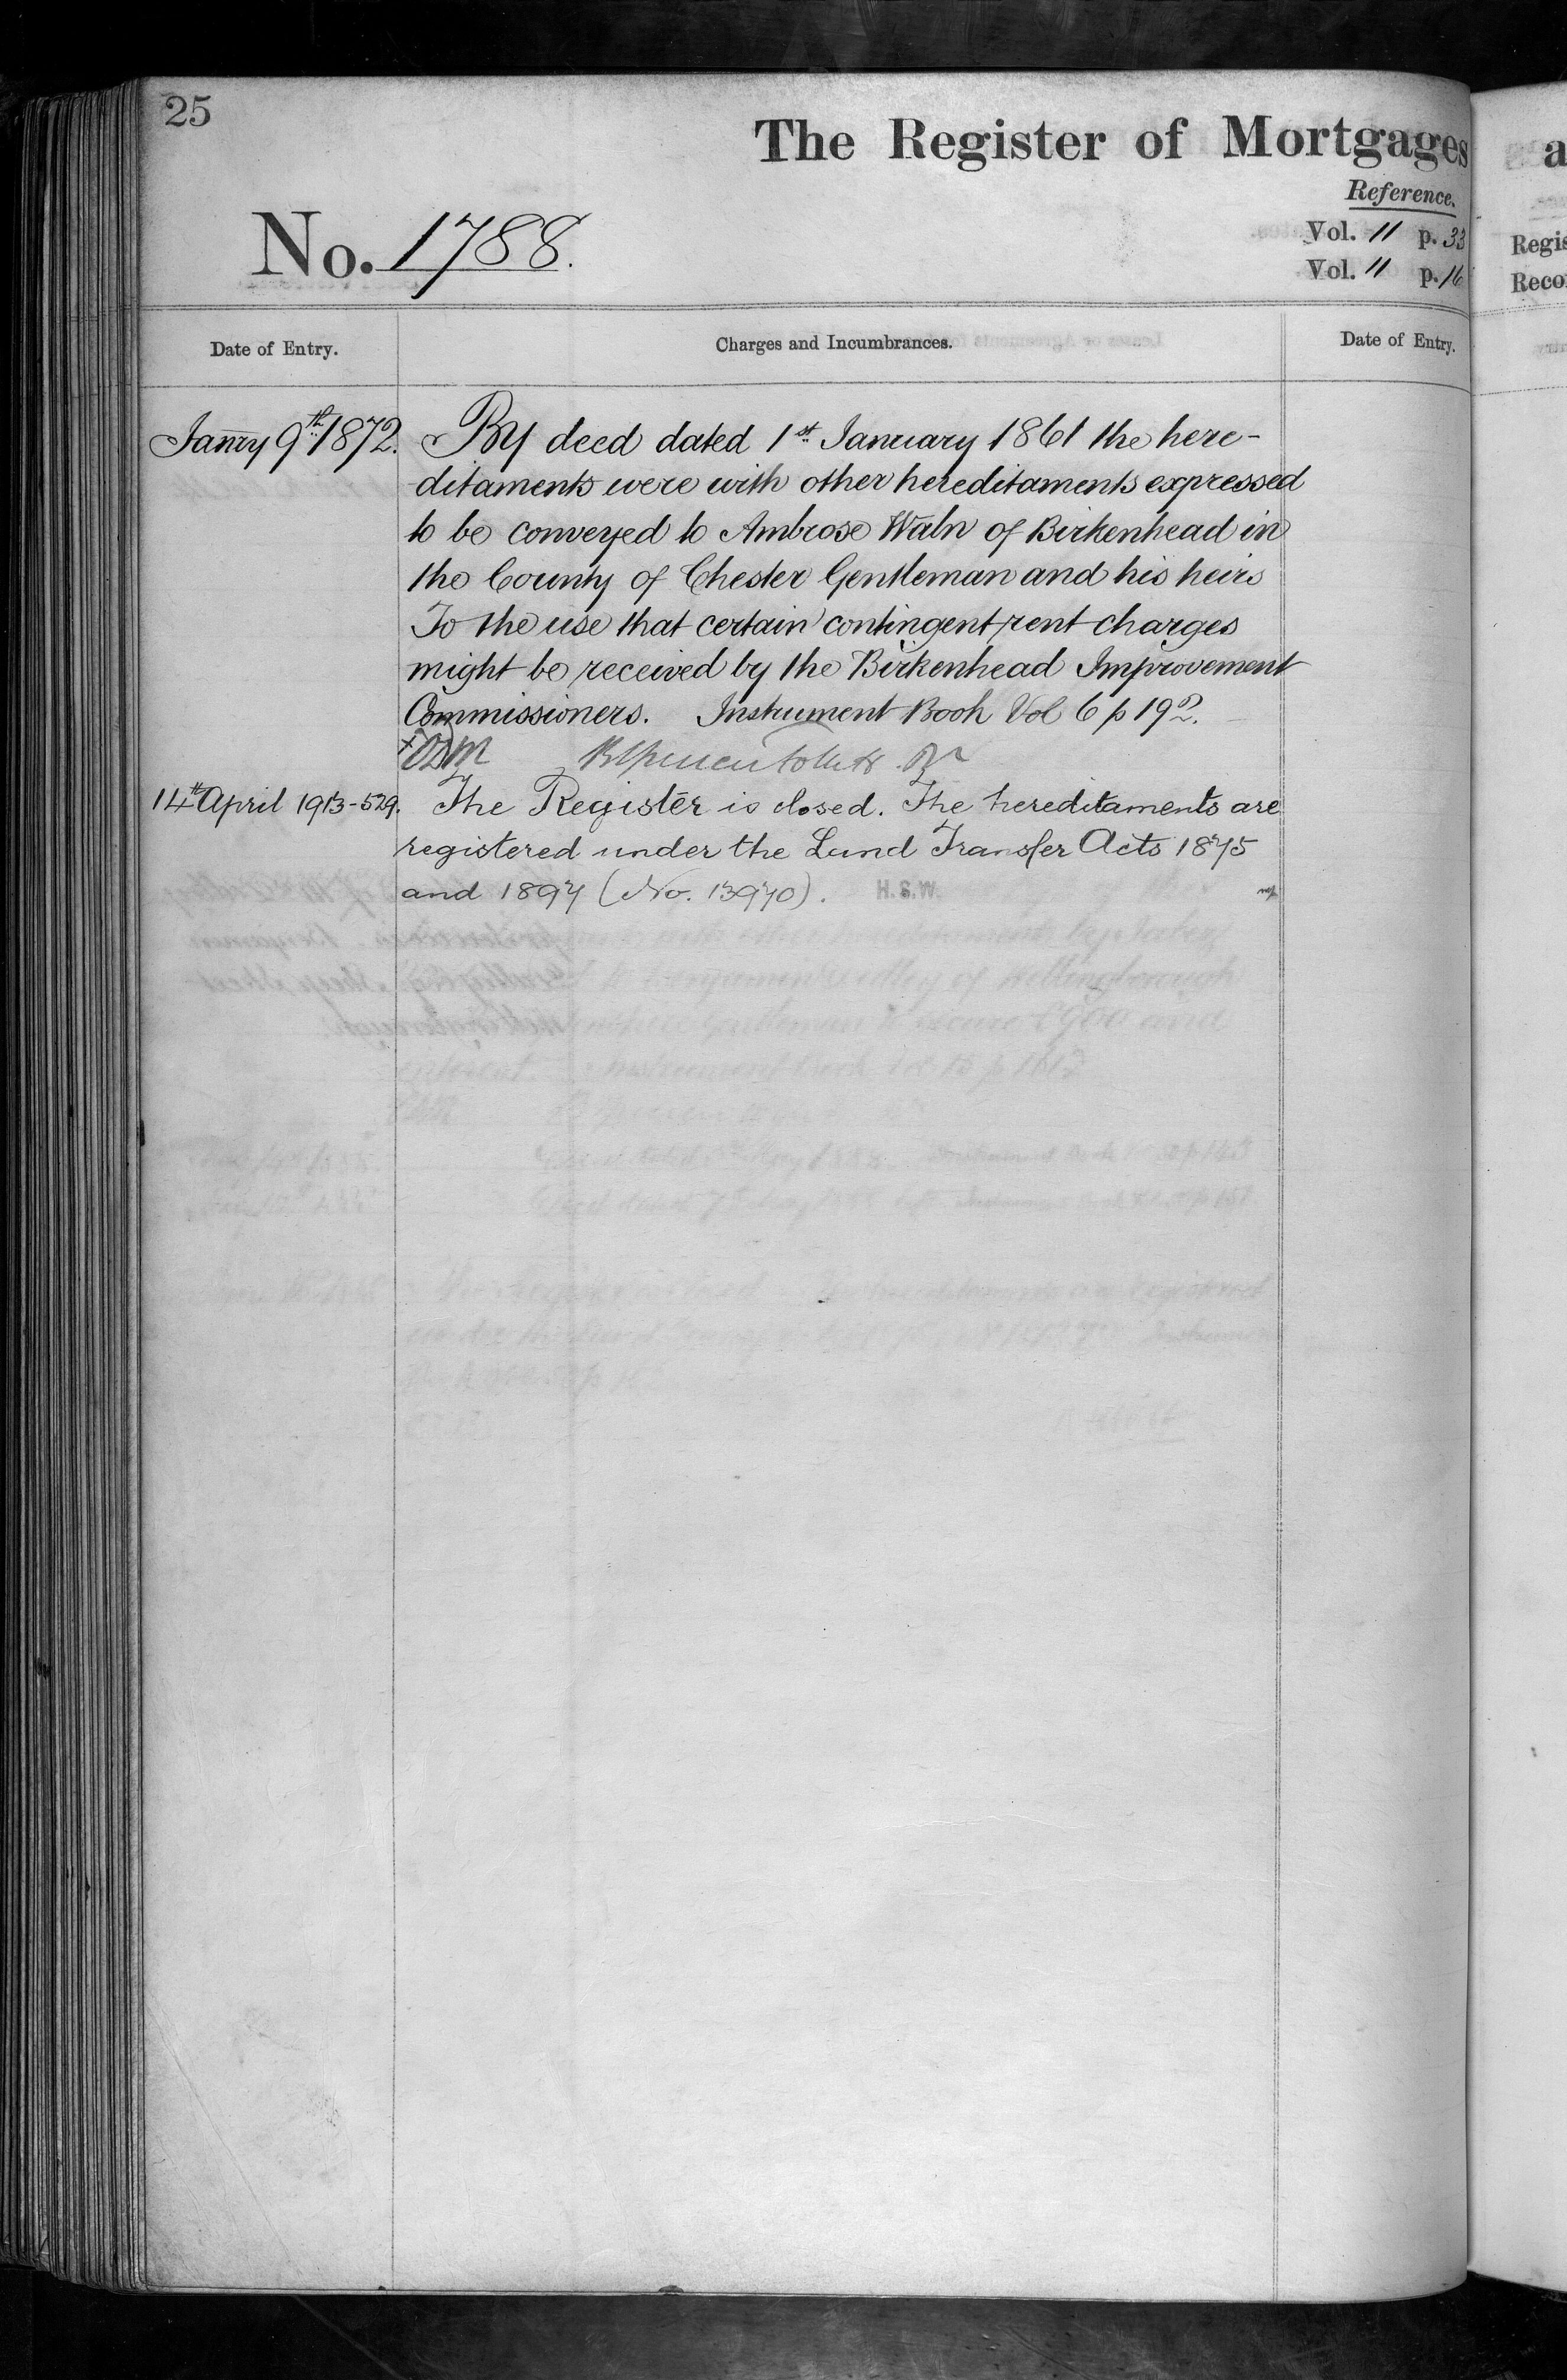 25
The Register of Mortgages
Reference.
No. 1788.
Vol. 11 p. 33
Vol. 11 p. 16
Date of Entry.
Charges and Incumbrances.
Date of Entry.
Janry 9th 1872.
By deed dated 1st January 1861 the here-
ditaments were with other hereditaments expressed
to be conveyed to Ambrose Waln of Birkenhead in
the County of Chester Gentleman and his heirs
To the use that certain contingent rent charges
might be received by the Birkenhead Improvement
Commissioners. Instrument Book Vol 6 p 192.
14th April 1913-529.
The Register is closed. The hereditaments are
registered under the Land Transfer Acts 1875
and 1897 (No. 13970). H.S.W.
a
Regis
Reco